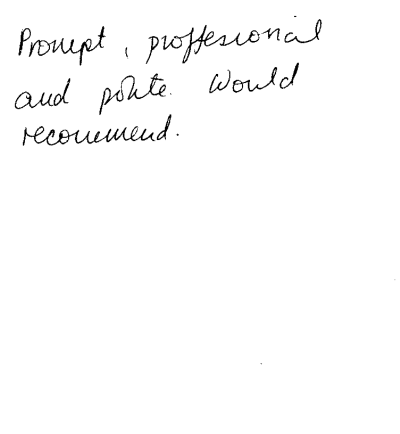 Prompt, proffesional
and polite. Would
recommend.